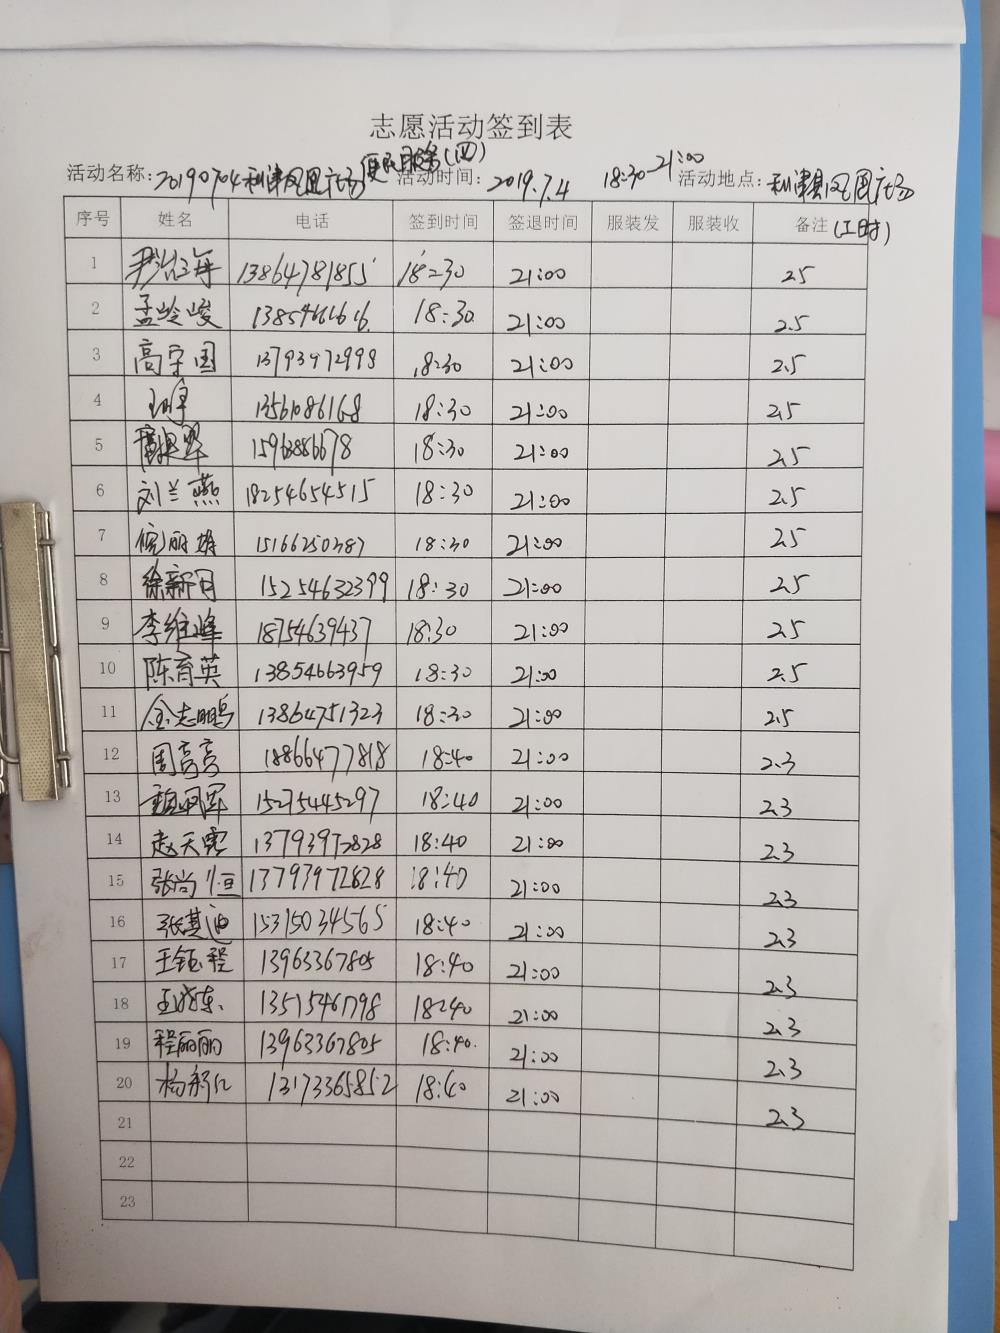 志愿活动签到表
活动名称: 20190704利津凤凰广场便民服务(四) 活动时间: 2019.7.4 18:30-21:00 活动地点: 利津县凤凰广场
序号 姓名 电话 签到时间 签退时间 服装发 服装收 备注(工时)
1 13864781855 18:30 21:00 2.5
2 孟岭峻 13854661616 18:30 21:00 2.5
3 高守国 13793972998 18:30 21:00 2.5
4 13561086168 18:30 21:00 2.5
5 15963886678 18:30 21:00 2.5
6 刘兰燕 18254654515 18:30 21:00 2.5
7 倪丽娟 15166250387 18:30 21:00 2.5
8 徐新月 15254632399 18:30 21:00 2.5
9 李维峰 18754639437 18:30 21:00 2.5
10 陈育英 13854663959 18:30 21:00 2.5
11 金志鹏 13864751323 18:30 21:00 2.5
12 周亮亮 18866477818 18:40 21:00 2.3
13 15275445297 18:40 21:00 2.3
14 赵天霞 13793972828 18:40 21:00 2.3
15 张尚恒 13793972828 18:40 21:00 2.3
16 张其迪 15315034565 18:40 21:00 2.3
17 王钰程 13963367805 18:40 21:00 2.3
18 13515461798 18:40 21:00 2.3
19 程丽丽 13963367805 18:40 21:00 2.3
20 13173365852 18:40 21:00 2.3
21
22
23